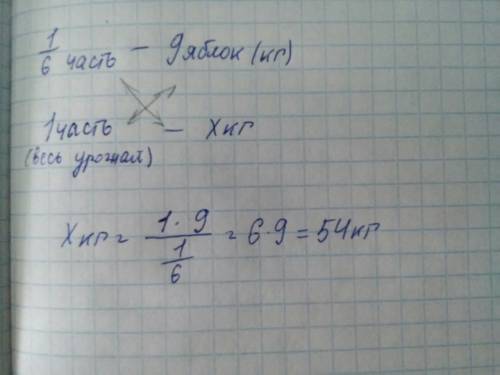 1/6 часть — 9 яблок (кг)
1 часть — Х кг
(весь урожай)
Х кг = (1·9)/(1/6) = 6·9 = 54 кг